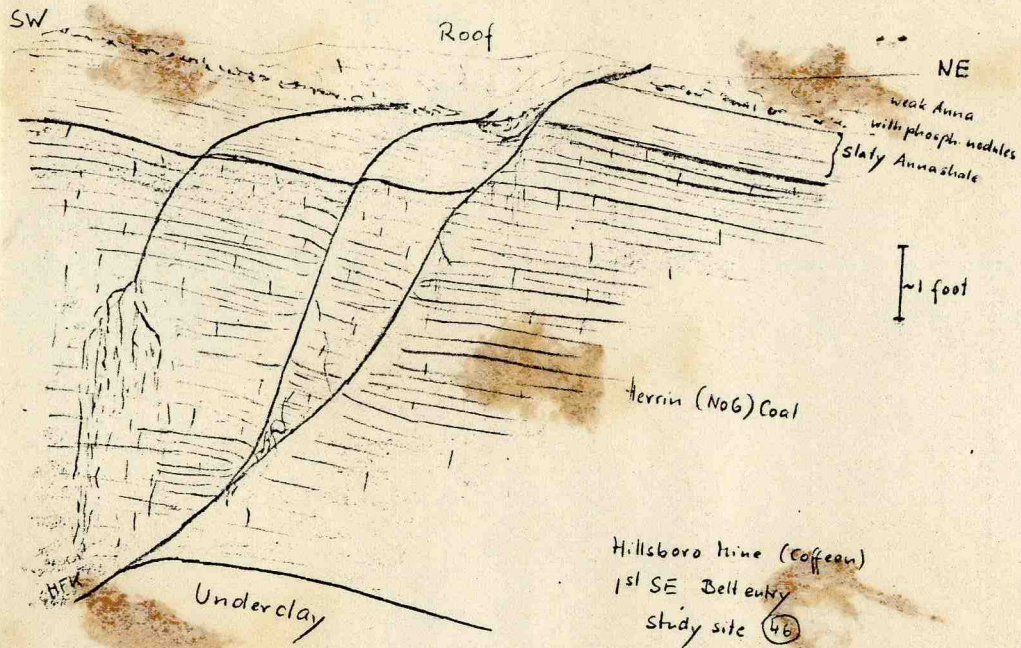 SW
Roof
NE
weak Anna
with phosph. nodules
Slaty Anna shale
~1 foot
Herrin (No6) Coal
Hillsboro Mine (Coffeen)
1st SE Belt entry
Study site 46
HFK
Underclay